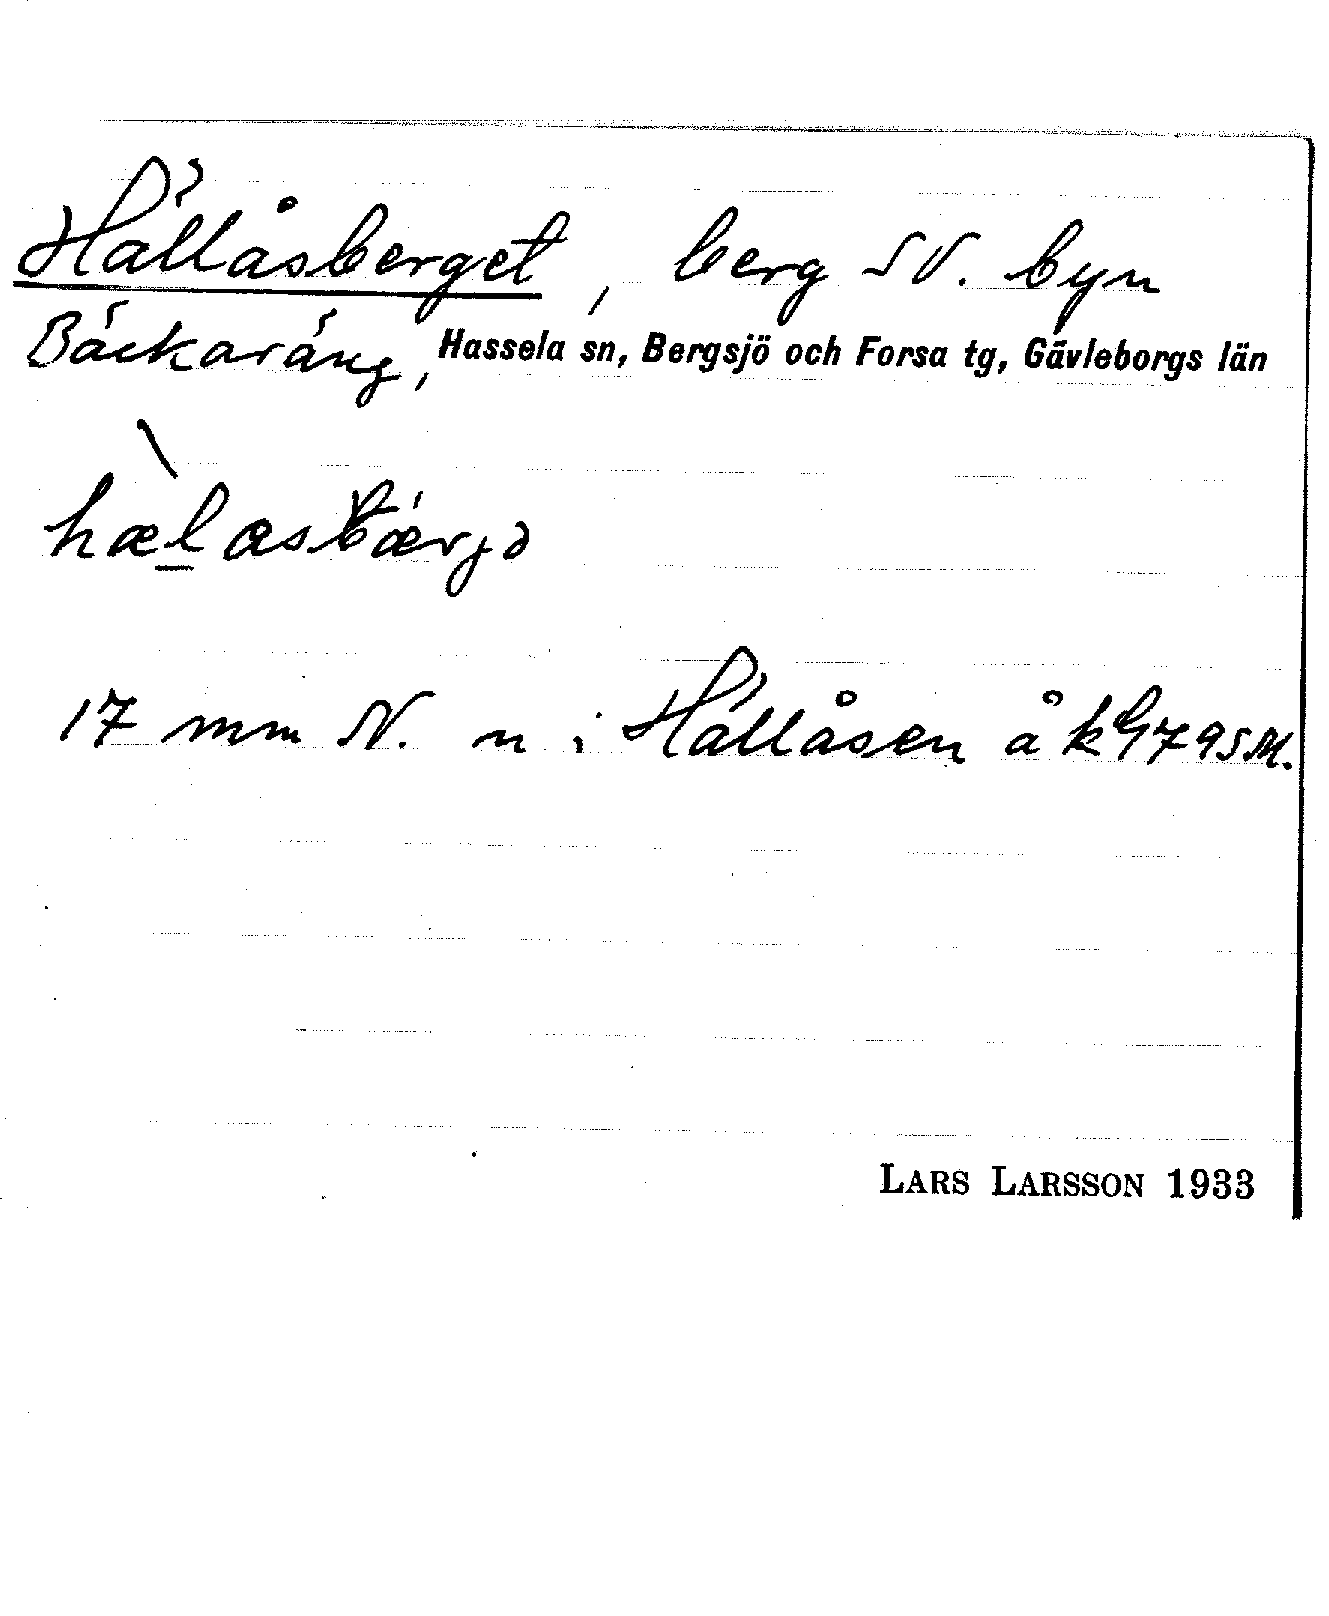 Hällåsberget, berg SV. byn
Bäckaräng, Hassela sn, Bergsjö och Forsa tg, Gävleborgs län
hælasbærjə
17 mm N. n i Hällåsen å kbl 79 SM.
LARS LARSSON 1933